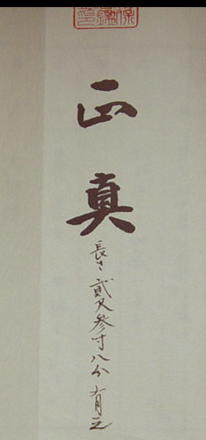 正真
長さ貳尺参寸八分有之